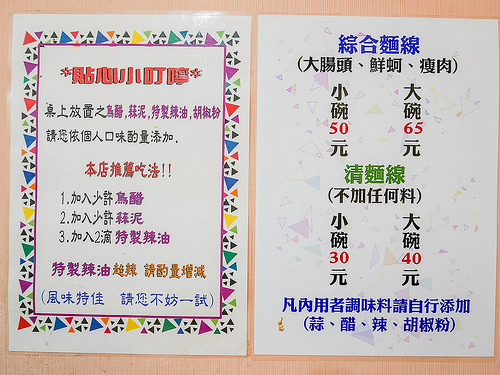 *貼心小叮嚀*
桌上放置之烏醋,蒜泥,特製辣油,胡椒粉
請您依個人口味酌量添加.
本店推薦吃法!!
1.加入少許烏醋
2.加入少許蒜泥
3.加入2滴特製辣油
特製辣油超辣 請酌量增減
(風味特佳 請您不妨一試)
綜合麵線
(大腸頭、鮮蚵、瘦肉)
小碗50元
大碗65元
清麵線
(不加任何料)
小碗30元
大碗40元
凡內用者調味料請自行添加
(蒜、醋、辣、胡椒粉)